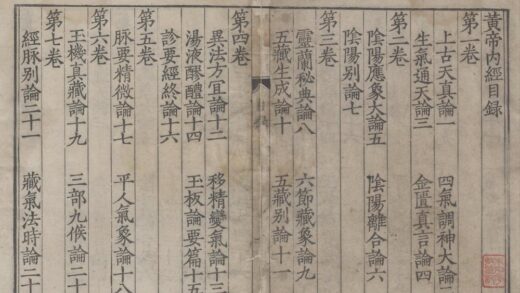 黃帝內經目錄
第一卷
上古天真論一 四氣調神大論二
生氣通天論三 金匱真言論四
第二卷
陰陽應象大論五 陰陽離合論六
陰陽別論七
第三卷
靈蘭秘典論八 六節藏象論九
五藏生成論十 五藏別論十一
第四卷
異法方宜論十二 移精變氣論十三
湯液醪醴論十四 玉板論要篇十五
診要經終論十六
第五卷
脉要精微論十七 平人氣象論十八
第六卷
玉機真藏論十九 三部九候論二十
第七卷
經脉別論二十一 藏氣法時論二十